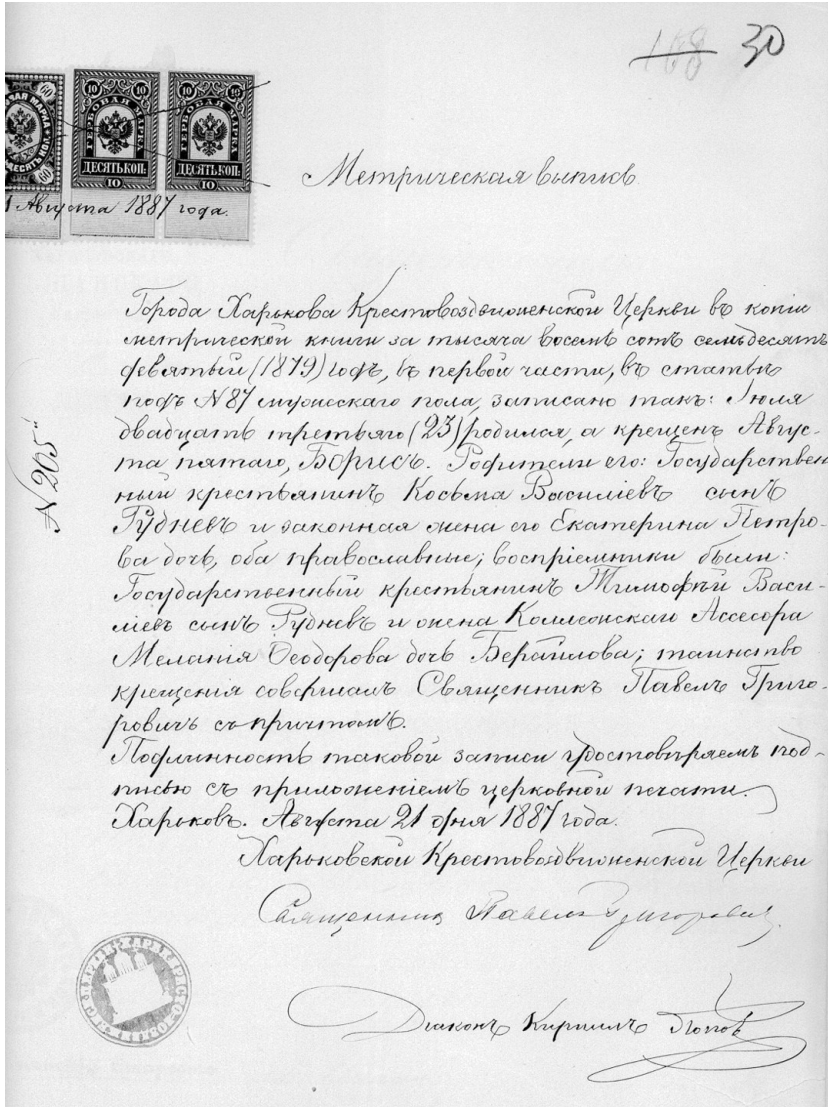 168 30
60
10 10
ГЕРБОВАЯ МАРКА
ДЕСЯТЬ КОП.
10
10 10
ГЕРБОВАЯ МАРКА
ДЕСЯТЬ КОП.
10
Августа 1887 года.
Метрическая выпись
Города Харькова Крестовоздвиженской Церкви въ копіи
метрической книги за тысяча восемь сотъ семьдесятъ
девятый (1879) годъ, въ первой части, въ статьѣ
подъ N 87 мужескаго пола, записано такъ: Іюля
двадцать третьяго (23) родился, а крещенъ Авгус-
та пятаго, Борисъ. Родители его: Государствен
ный крестьянинъ Косьма Василіевъ сынъ
Рудневъ и законная жена его Екатерина Петро-
ва дочь, оба православные; воспріемники были:
Государственный крестьянинъ Тимофѣй Васи-
ліевъ сынъ Рудневъ и жена Коллежскаго Ассесора
Меланія Ѳеодорова дочь; таинство
крещенія совершалъ Священникъ Павелъ Григо-
ровичъ съ причтомъ.
Подлинность таковой записи удостовѣряемъ под-
писью съ приложеніемъ церковной печати.
Харьковъ. Августа 21 дня 1887 года.
Харьковской Крестовоздвиженской Церкви
Священникъ Павелъ Григоровичъ
Діаконъ Кириллъ Поповъ
N 205